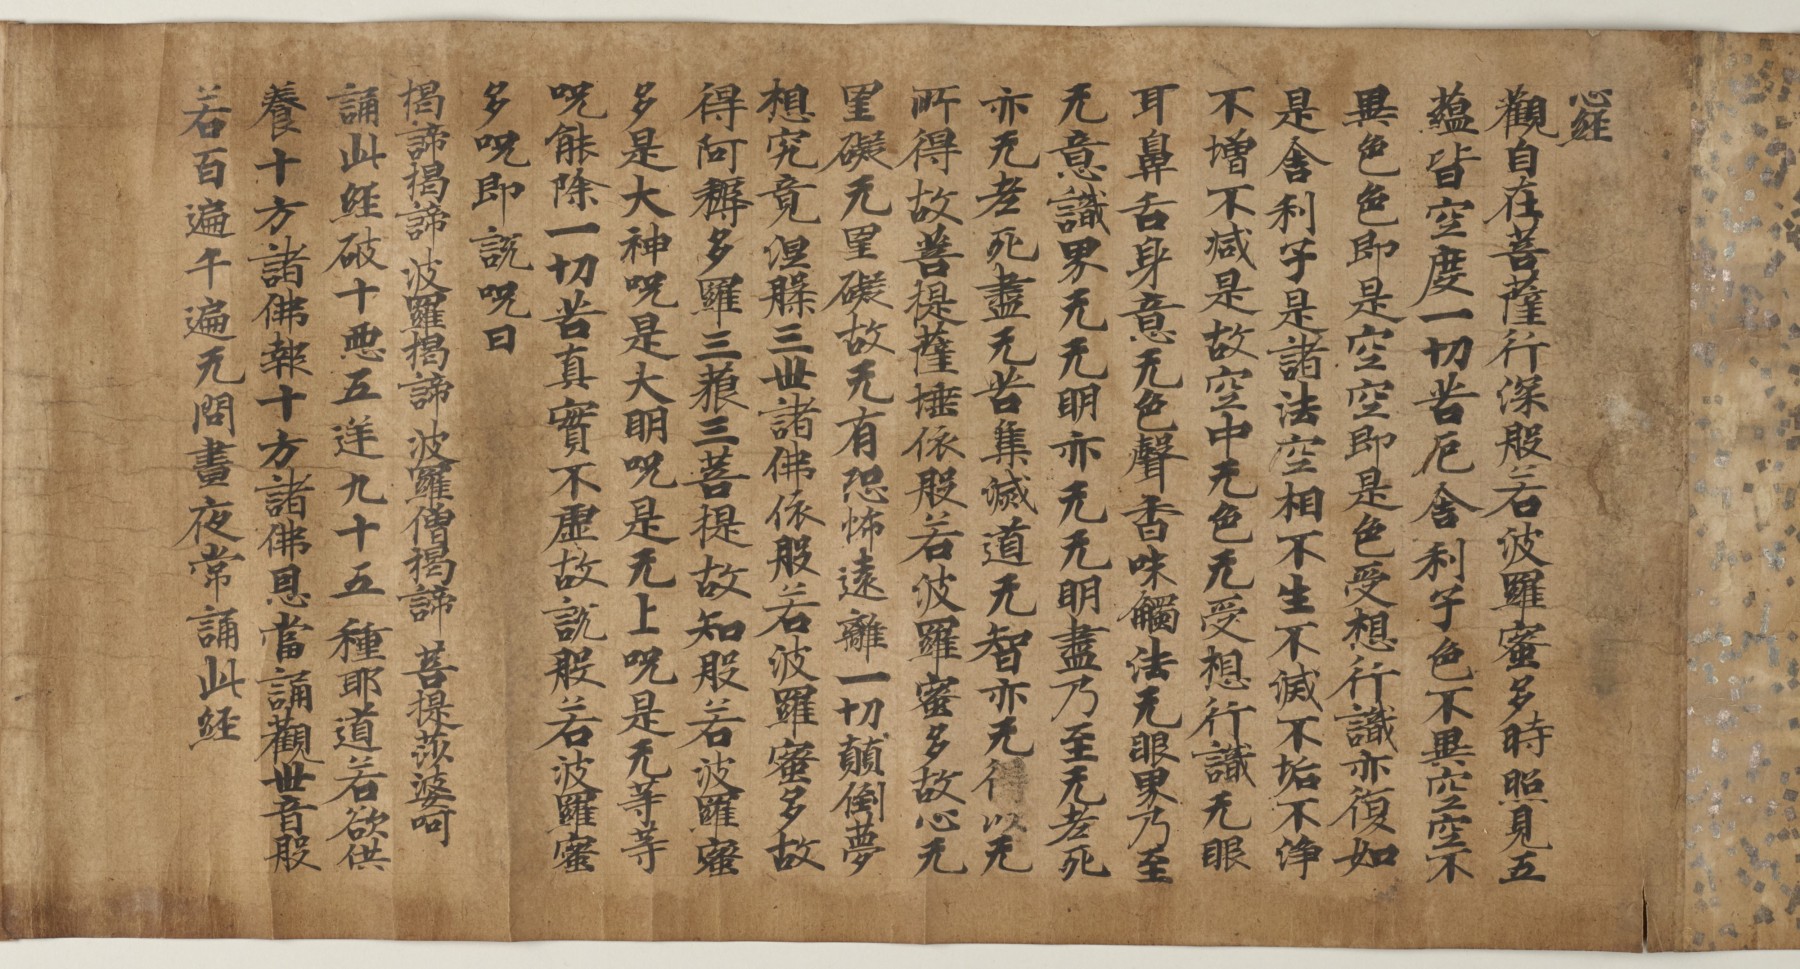 心経
觀自在菩薩行深般若波羅蜜多時照見五
蘊皆空度一切苦厄舍利子色不異空空不
異色色即是空空即是色受想行識亦復如
是舍利子是諸法空相不生不滅不垢不浄
不増不減是故空中无色无受想行識无眼
耳鼻舌身意无色聲香味觸法无眼界乃至
无意識界无无明亦无无明盡乃至无老死
亦无老死盡无苦集滅道无智亦无得以无
所得故菩提薩埵依般若波羅蜜多故心无
罣礙无罣礙故无有恐怖遠離一切顛倒夢
想究竟涅槃三世諸佛依般若波羅蜜多故
得阿耨多羅三藐三菩提故知般若波羅蜜
多是大神呪是大明呪是无上呪是无等等
呪能除一切苦真實不虛故説般若波羅蜜
多呪即説呪曰
揭諦揭諦 波羅揭諦 波羅僧揭諦 菩提莎婆呵
誦此経破十惡五逆九十五種耶道若欲供
養十方諸佛報十方諸佛恩當誦觀世音般
若百遍千遍无問晝夜常誦此経